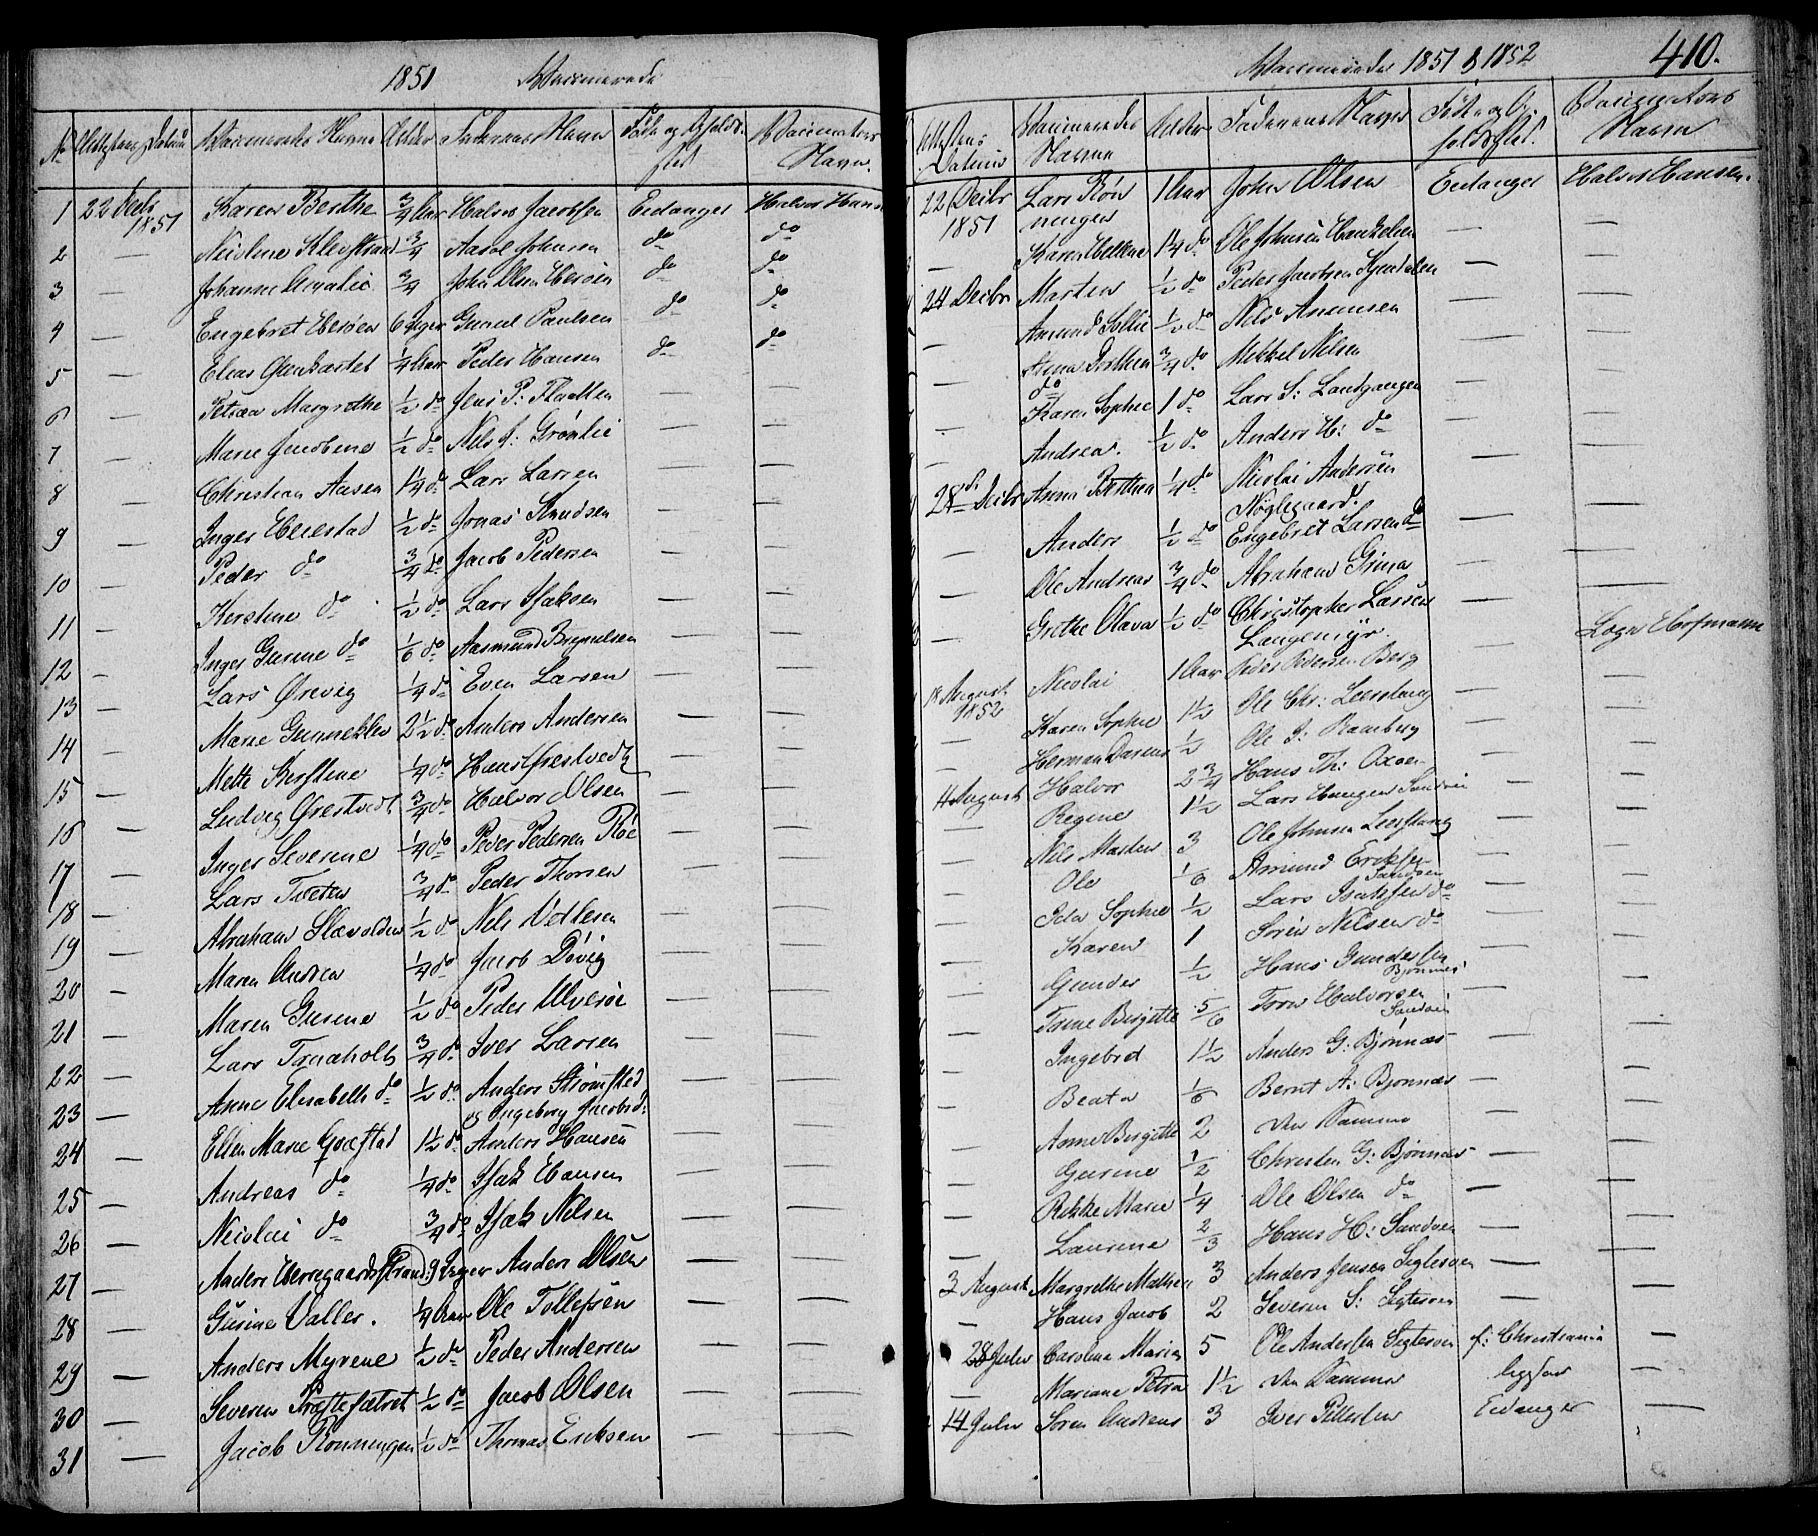 1851 Vaccinerede
No Attestens Datum Vaccineredes Navne Alder Faderens Navn Føde og Opholds- Vaccinateurs
sted Navn.
1 22 Decbr Karen Berthe 3/4 Aar Halvor Jacobsen Eidanger Halvor Hansen
1851
2 — Nicoline Klevstrand 3/4 Johnsen do do
3 — Johanne Amalie 3/4 John Olsen Herøen do do
4 — Engebret Herøen 6 Uger Gunul Paulsen do do
5 — Elias 1/4 Aar Peder Hansen do do
6 — Petrea Margrethe 1/2 do Jens P: — —
7 — Maren Jacobine 1/2 do Nils J: Grønlie — —
8 — Christian Aasen 1 1/4 do Lars Larsen — —
9 — Inger Heiestad 1/2 do Jonas Knudsen — —
10 — Peder do 3/4 do Jacob Pedersen — —
11 — Kerstine do 1/2 do Lars Isaksen — —
12 — Inger Gurine do 1/6 do Aasmund Brynulsen — —
13 — Lars Ørevig 1/4 do Even Larsen — —
14 — Maren Gunneklev 2 1/2 do Anders Andersen — —
15 — Mette Kerstine 1/4 do Hans Ørstvedt — —
16 — Ludvig Ørstvedt 3/4 do Halvor Olsen — —
17 — Inger Severine 1/4 do Peder Pedersen Røe — —
18 — Lars Tveten 3/4 do Peder Thorsen — —
19 — Abraham 1/2 do Nels Vetlesen — —
20 — Maren Andrea 1/4 do Jacob Døvig — —
21 — Maren Gurine 1/2 do Peder Ulverøe — —
22 — Lars Tvedholt 3/4 do Iver Larsen — —
23 — Anne Elisabeth do 1/2 do Anders Strømsted — —
& Ingeborg Jacobsd:
24 — Ellen Marie Qvæstad 1 1/2 do Anders Hansen — —
25 — Andreas do 1/4 do Isak Hansen — —
26 — Nicolai do 3/4 do Isak Nelsen — —
27 — Anders Herregaardsstrand 9 Uger Anders Olsen — —
28 — Gurine Valler. 1/4 Aar Ole Tollefsen — —
29 — Anders Myrene 1/2 do Peder Andersen — —
30 — Severin Præstesætret 1/2 do Jacob Olsen — —
31 — Jacob Rønningen 1/2 do Thomas Eriksen — —
Vaccinerede 1851 & 1852 410.
Attestens Vaccineredes Alder Faderens Navn Føde og Op- Vaccinateurs
Datum Navne holdssted. Navn
22 Decbr Lars Røn 1 Aar John Olsen Eidanger Halvor Hansen.
1851 ningen
— Karen Helene 1 1/4 do Ole Johnsen — —
24 Decbr Marten 1/2 do Peder Jacobsen — —
— Amund 1/2 do Nels Amunsen — —
— Anna 3/4 do Mekkel Nelsen — —
— do Karen Sophie 1 do Lars S: Landgangen — —
— Andrea. 1/2 do Anders H: do — —
28de Decbr Anne Berthea 1/4 do Nicolai Andersen — —
Nøglegaard.
— Anders 1/2 do Engebret Larsen do — —
— Ole Andreas 3/4 do Abraham Grina — —
— Grethe Olava 1/2 do Christopher Larsen — —
Langemyr.
18 August Nicolai 1 Aar Peder Pedersen Berg — Hofmann
1852
— Karen Sophie 1 1/2 Ole Chr: Leerstang — —
— Herman 1/2 Ole J: Ramberg — —
4 August Halvor 2 3/4 Hans Th: Oxøen — —
— Regine 1 1/2 Lars Haugen Sandøen — —
— Nils Marten 3 Ole Johnsen Leerstang — —
— Ole 1/6 Amund Eriksen — —
Sandøen
— Sophie 1/2 Lars Isaksen do — —
— Karen 1 Søren Nelsen do — —
— Gunder 1/2 Hans Gundersen — —
Bjønnes
— Tone Birgitte 5/6 Tron Halvorsen — —
Sandøen
— Ingebrd 1 1/2 Anders G: Bjønnes — —
— Beata 1/6 Bernt A: Bjønnes — —
— Anne Birgitte 2 den Samme — —
— Gurine 1/2 Christen G: Bjønnes — —
— Rikke Marie 1/4 Ole Olsen do — —
— Laurine 2/3 Hans H: Sandøen — —
3 August Margrethe Mathea 3 Anders Jensen Sigtesøen — —
— Hans Jacob 2 Severin S: Sigtesøen — —
28 Julie Caroline Maria 5 Ole Andersen Sigtesøen f: Christiania —
— Mariane Petra 1 1/2 den Samme —
14 Julie Søren Andreas 3 Iver Eidanger —